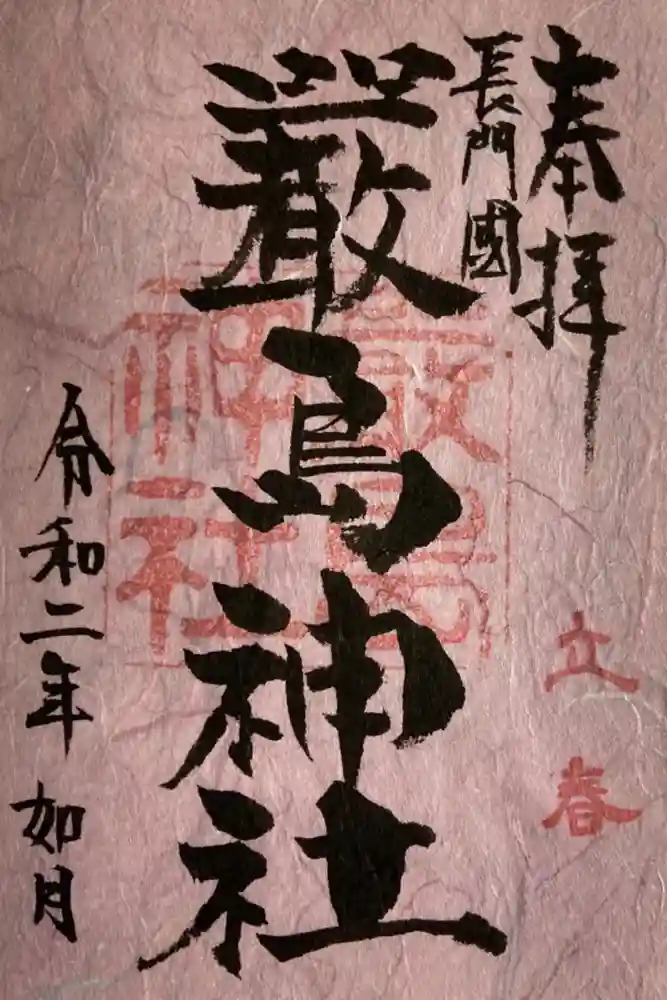 奉拝
長門國
立春
嚴島神社
嚴島
神社
令和二年 如月